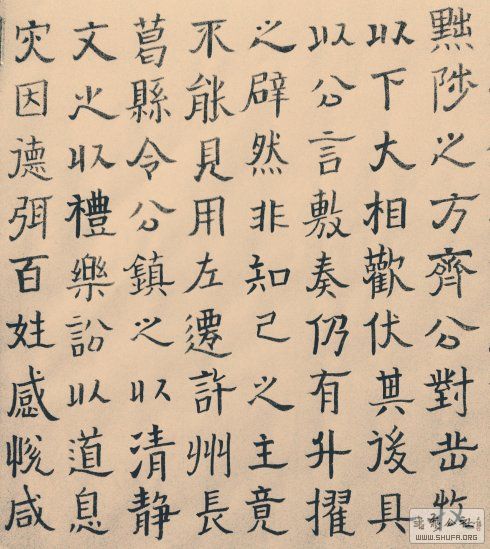 黜陟之方齊公對岀牧
以下大相歡伏其後具
以公言敷奏仍有升擢
之辟然非知己之主竟
不能見用左遷許州長
葛縣令公鎮之以清静
文之以禮樂訟以道息
灾因德弭百姓感悦咸
WWW.SHUFA.ORG